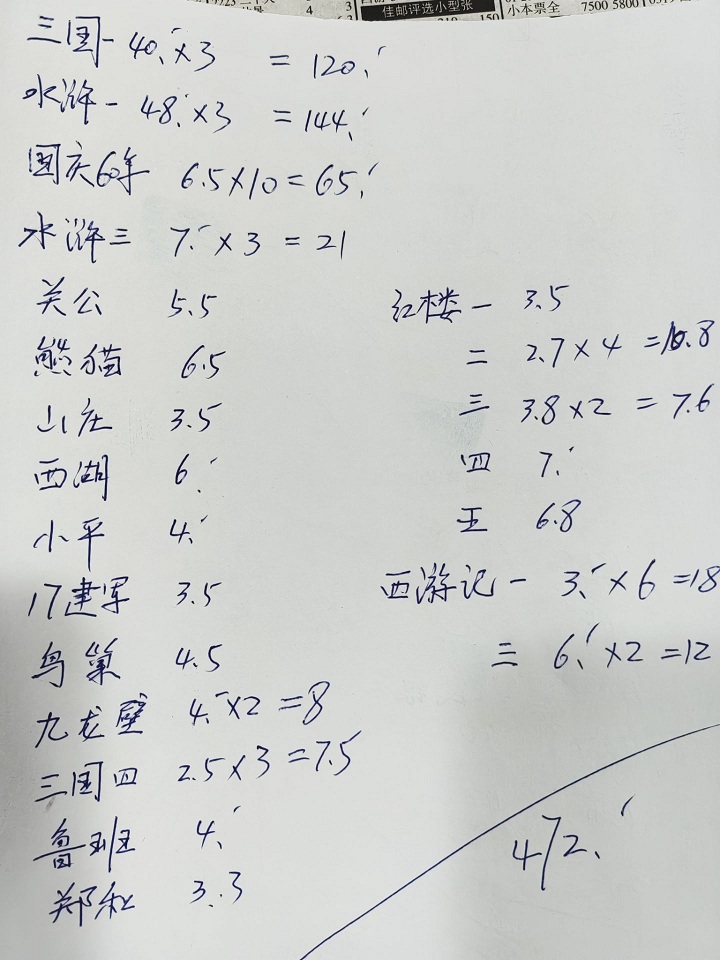 佳邮评选小型张
小本票全 7500 5800
三国- 40.×3 =120.
水浒- 48.×3 =144.
国庆60年 6.5×10=65.
水浒三 7.×3 =21
关公 5.5
熊猫 6.5
山庄 3.5
西湖 6.
小平 4.
17建军 3.5
鸟巢 4.5
九龙壁 4.×2=8
三国四 2.5×3=7.5
鲁班 4.
郑和 3.3
红楼一 3.5
二 2.7×4=10.8
三 3.8×2=7.6
四 7.
五 6.8
西游记一 3.×6=18
三 6.×2=12
472.